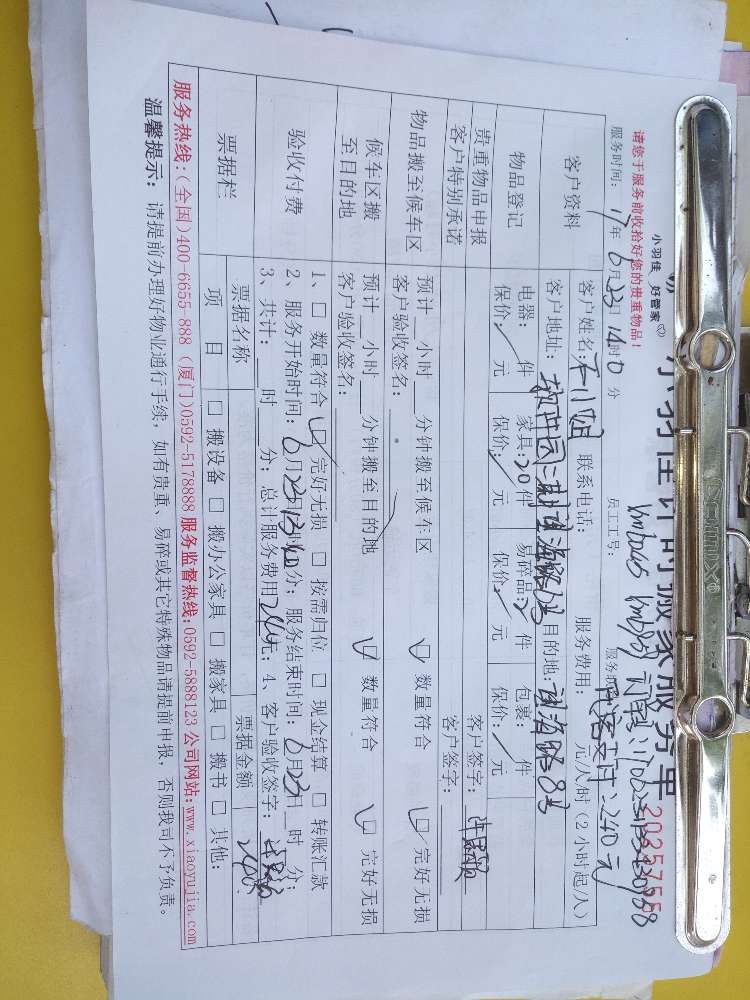 小羽佳 好管家
小羽佳计时搬家服务单
请您于服务前收拾好您的贵重物品！
2025755
服务时间：17年6月23日14时0分
员工工号：
客户资料
客户姓名：
联系电话：
服务费用： 元/人/时（2小时起/人）
代客支付：240元
客户地址：软件园二期望海路
目的地：望海路8号
物品登记
电器： 件
家具：20件
易碎品： 件
包裹： 件
保价： 元
保价： 元
保价： 元
保价： 元
贵重物品申报
客户特别承诺
客户签字：
客户签字：
物品搬至候车区
预计 小时 分钟搬至候车区
数量符合
完好无损
客户验收签名：
候车区搬
至目的地
预计 小时 分钟搬至目的地
数量符合
完好无损
客户验收签名：
验收付费
1、□ 数量符合 □ 完好无损 □ 按需归位 □ 现金结算 □ 转账汇款
2、服务开始时间：6月23日13时40分；服务结束时间：6月23日 时 分；
3、共计： 时 分；总计服务费用240元；4、客户验收签字：
票据栏
票据名称
票据金额
240
项 目
□ 搬设备 □ 搬办公家具 □ 搬家具 □ 搬书 □ 其他：
服务热线：(全国)400-6655-888 (厦门)0592-5178888 服务监督热线：0592-5888123 公司网站：www.xiaoyujia.com
温馨提示：请提前办理好物业通行手续，如有贵重、易碎或其它特殊物品请提前申报，否则我司不予负责。